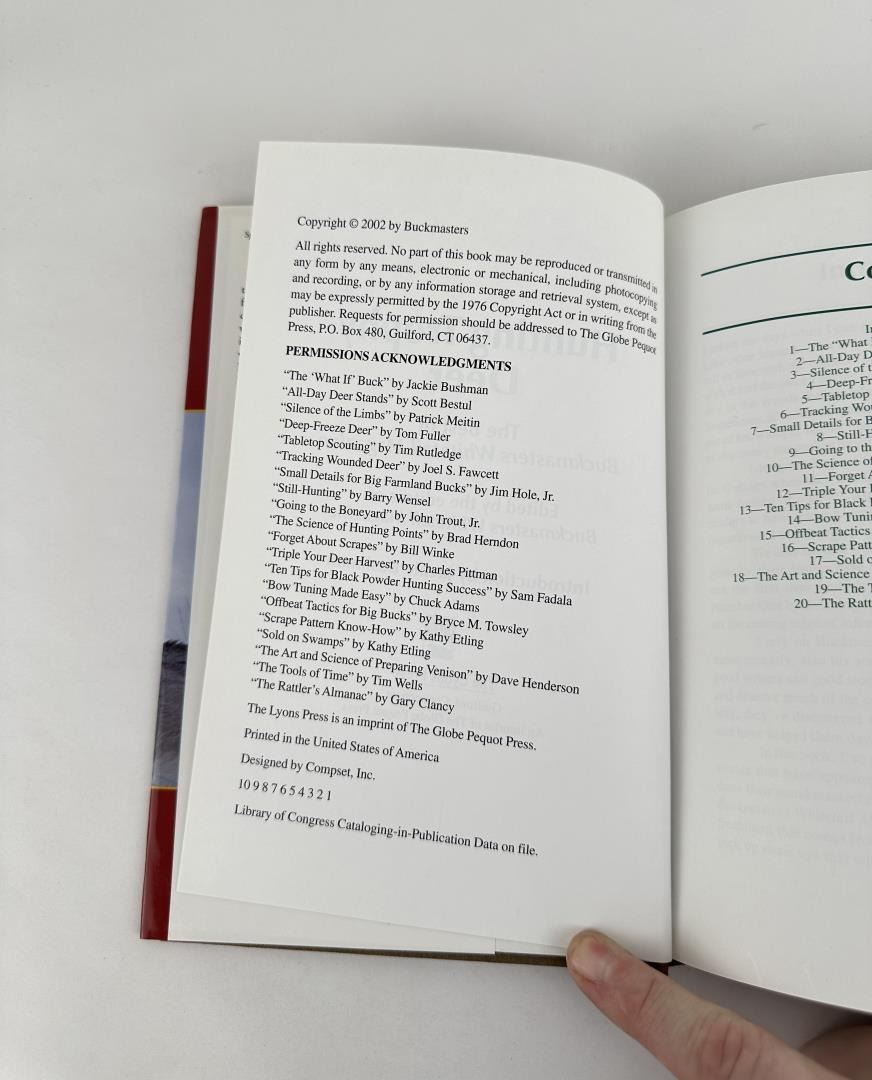 Copyright © 2002 by Buckmasters
All rights reserved. No part of this book may be reproduced or transmitted in
any form by any means, electronic or mechanical, including photocopying
and recording, or by any information storage and retrieval system, except as
may be expressly permitted by the 1976 Copyright Act or in writing from the
publisher. Requests for permission should be addressed to The Globe Pequot
Press, P.O. Box 480, Guilford, CT 06437.
PERMISSIONS ACKNOWLEDGMENTS
“The ‘What If’ Buck” by Jackie Bushman
“All-Day Deer Stands” by Scott Bestul
“Silence of the Limbs” by Patrick Meitin
“Deep-Freeze Deer” by Tom Fuller
“Tabletop Scouting” by Tim Rutledge
“Tracking Wounded Deer” by Joel S. Fawcett
“Small Details for Big Farmland Bucks” by Jim Hole, Jr.
“Still-Hunting” by Barry Wensel
“Going to the Boneyard” by John Trout, Jr.
“The Science of Hunting Points” by Brad Herndon
“Forget About Scrapes” by Bill Winke
“Triple Your Deer Harvest” by Charles Pittman
“Ten Tips for Black Powder Hunting Success” by Sam Fadala
“Bow Tuning Made Easy” by Chuck Adams
“Offbeat Tactics for Big Bucks” by Bryce M. Towsley
“Scrape Pattern Know-How” by Kathy Etling
“Sold on Swamps” by Kathy Etling
“The Art and Science of Preparing Venison” by Dave Henderson
“The Tools of Time” by Tim Wells
“The Rattler’s Almanac” by Gary Clancy
The Lyons Press is an imprint of The Globe Pequot Press.
Printed in the United States of America
Designed by Compset, Inc.
10 9 8 7 6 5 4 3 2 1
Library of Congress Cataloging-in-Publication Data on file.
Co
In
1—The “What
2—All-Day D
3—Silence of t
4—Deep-Fr
5—Tabletop
6—Tracking Wou
7—Small Details for B
8—Still-H
9—Going to th
10—The Science of
11—Forget A
12—Triple Your
13—Ten Tips for Black
14—Bow Tuni
15—Offbeat Tactics
16—Scrape Patt
17—Sold o
18—The Art and Science
19—The T
20—The Ratt